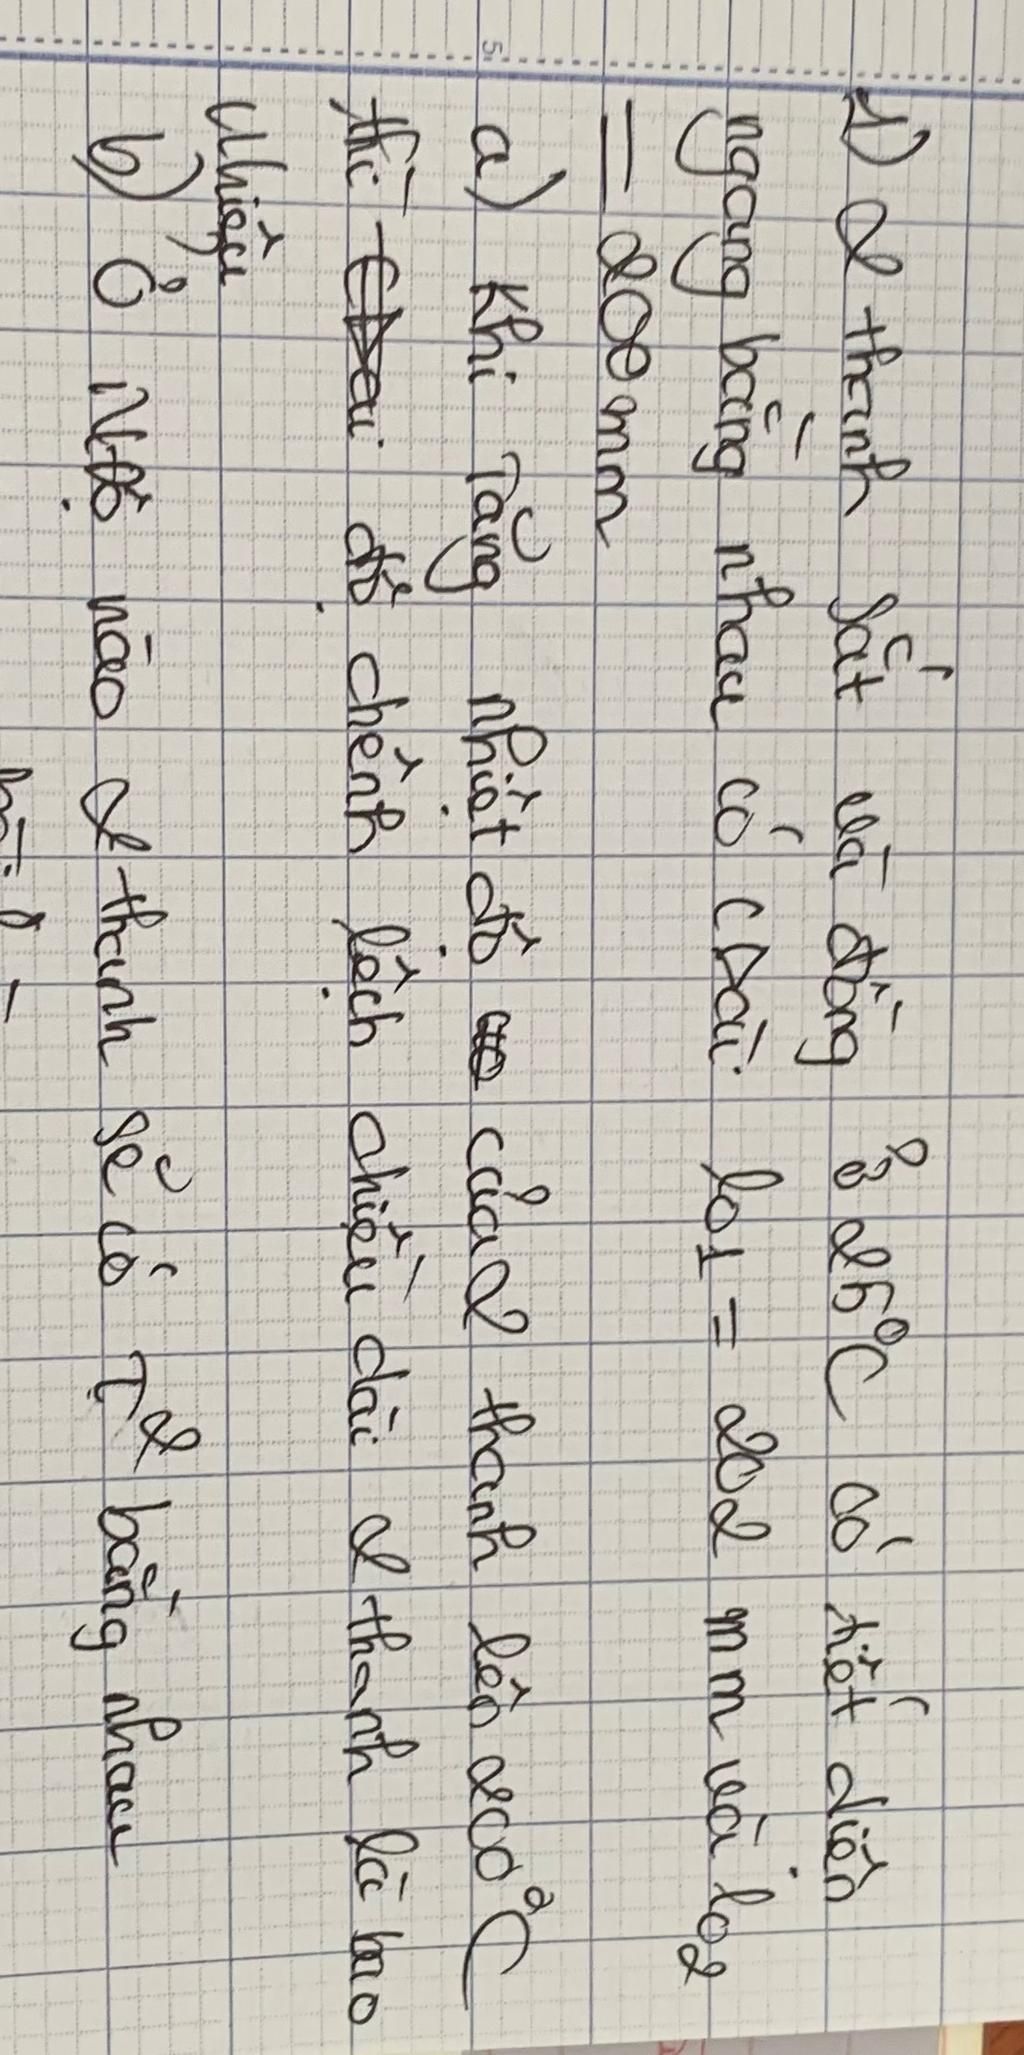 1) 2 thanh sắt và đồng ở 25°C có tiết diện
ngang bằng nhau có cDài l01 = 202 mm và l02
= 200 mm
a) Khi tăng nhiệt độ của 2 thanh lên 200°C
thì độ chênh lệch chiều dài 2 thanh là bao
nhiêu
b) Ở Nđộ nào 2 thanh sẽ có T2 bằng nhau